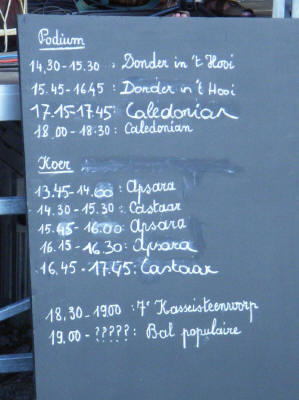 Podium
14.30-15.30 : Donder in 't Hooi
15.45-16.45 : Donder in 't Hooi
17.15-17.45: Caledonian
18.00-18:30: Caledonian
Koer
13.45-14.00: Apsara
14.30-15.30: Castaar
15.45-16.00: Apsara
16.15-16.30: Apsara
16.45-17.45: Castaar
18.30-1900: 7e Kasseisteenworp
19.00-?????: Bal populaire